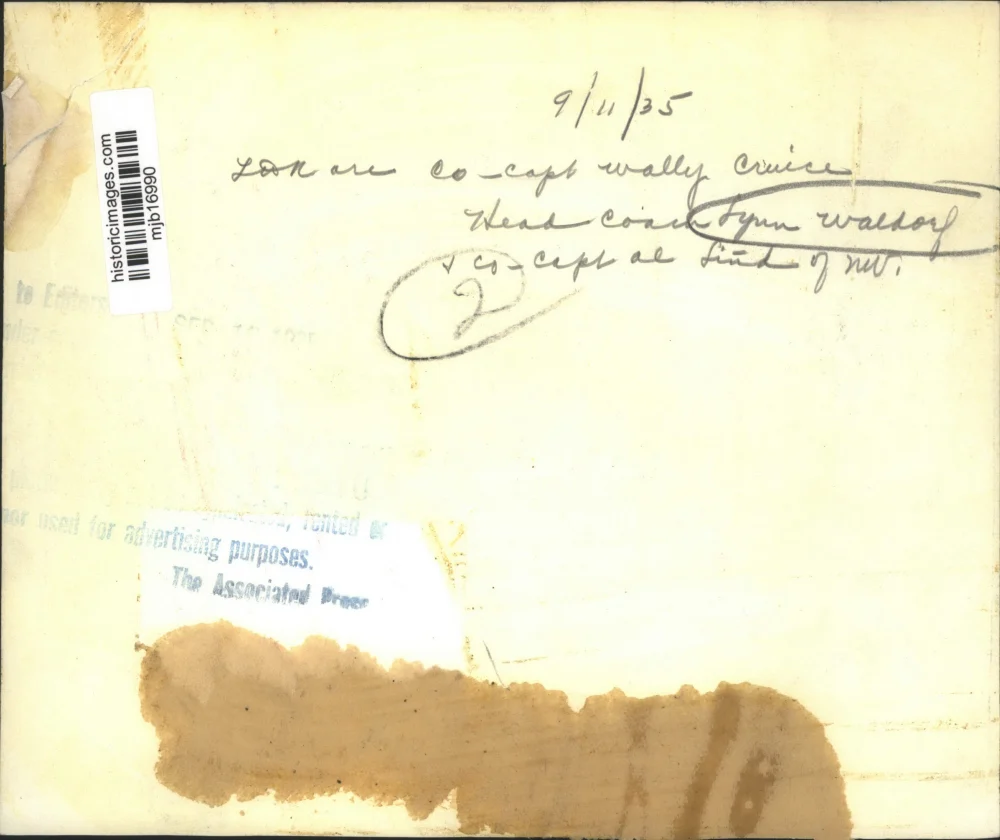 9/11/35
L to R are co-capt wally Cruice
Head Coach Lynn Waldorf
& co-capt al Lind of NU.
2
historicimages.com
mjb16990
to Editors
SEP
rented or
nor used for advertising purposes.
The Associated Press